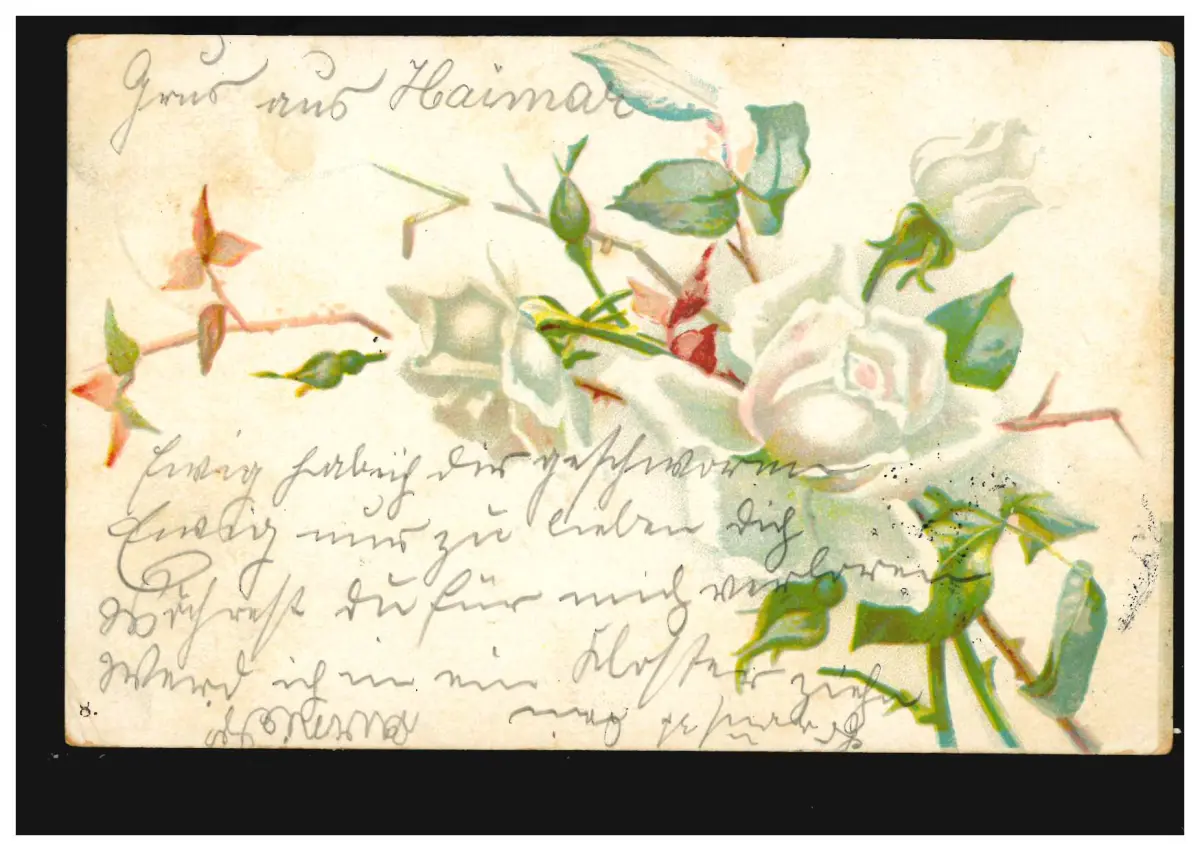 Grus aus Haimar
Ewig hab ich dir geschworen
Ewig nur zu lieben dich
Währest du für mich verloren
Werd ich in ein Kloster ziehn
8.